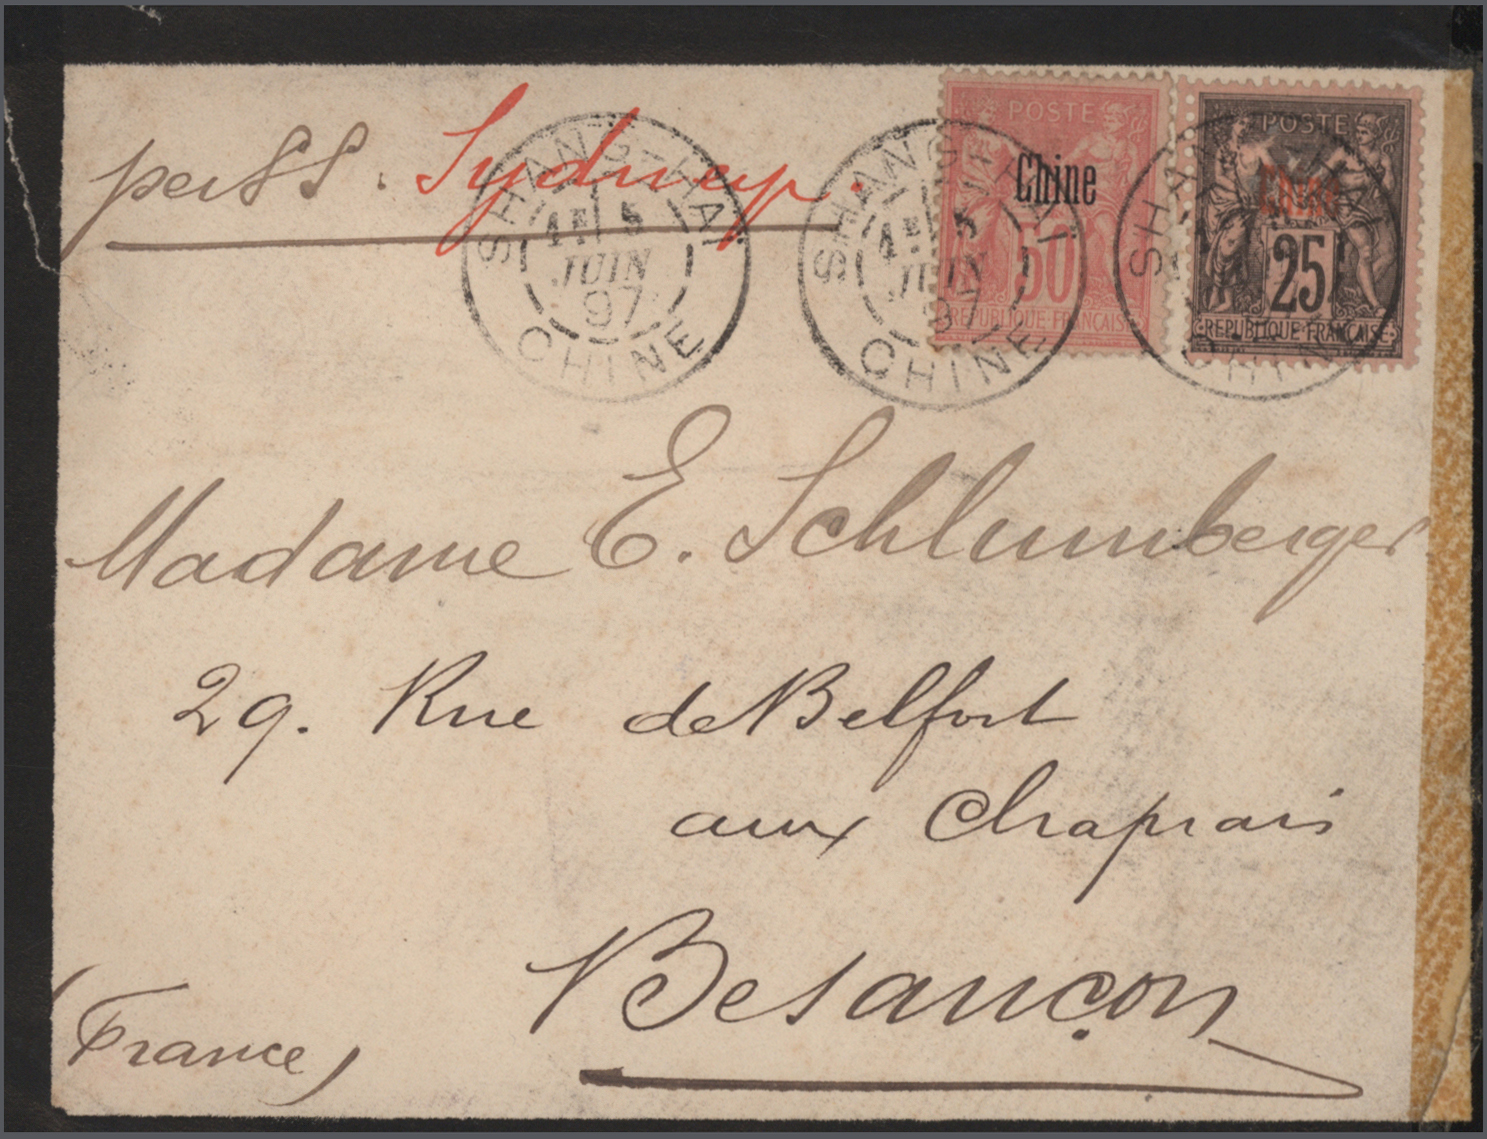 per SS. Sydney.
SHANG-HAI
1E 5
JUIN
97
CHINE
SHANG-HAI
1E 5
JUIN
97
CHINE
POSTE
Chine
50
REPUBLIQUE FRANÇAISE
SHANG-HAI
CHINE
POSTE
Chine
25
REPUBLIQUE FRANÇAISE
Madame E. Schlumberger
29. Rue de Belfort
aux Chaprais
Besançon
(France)